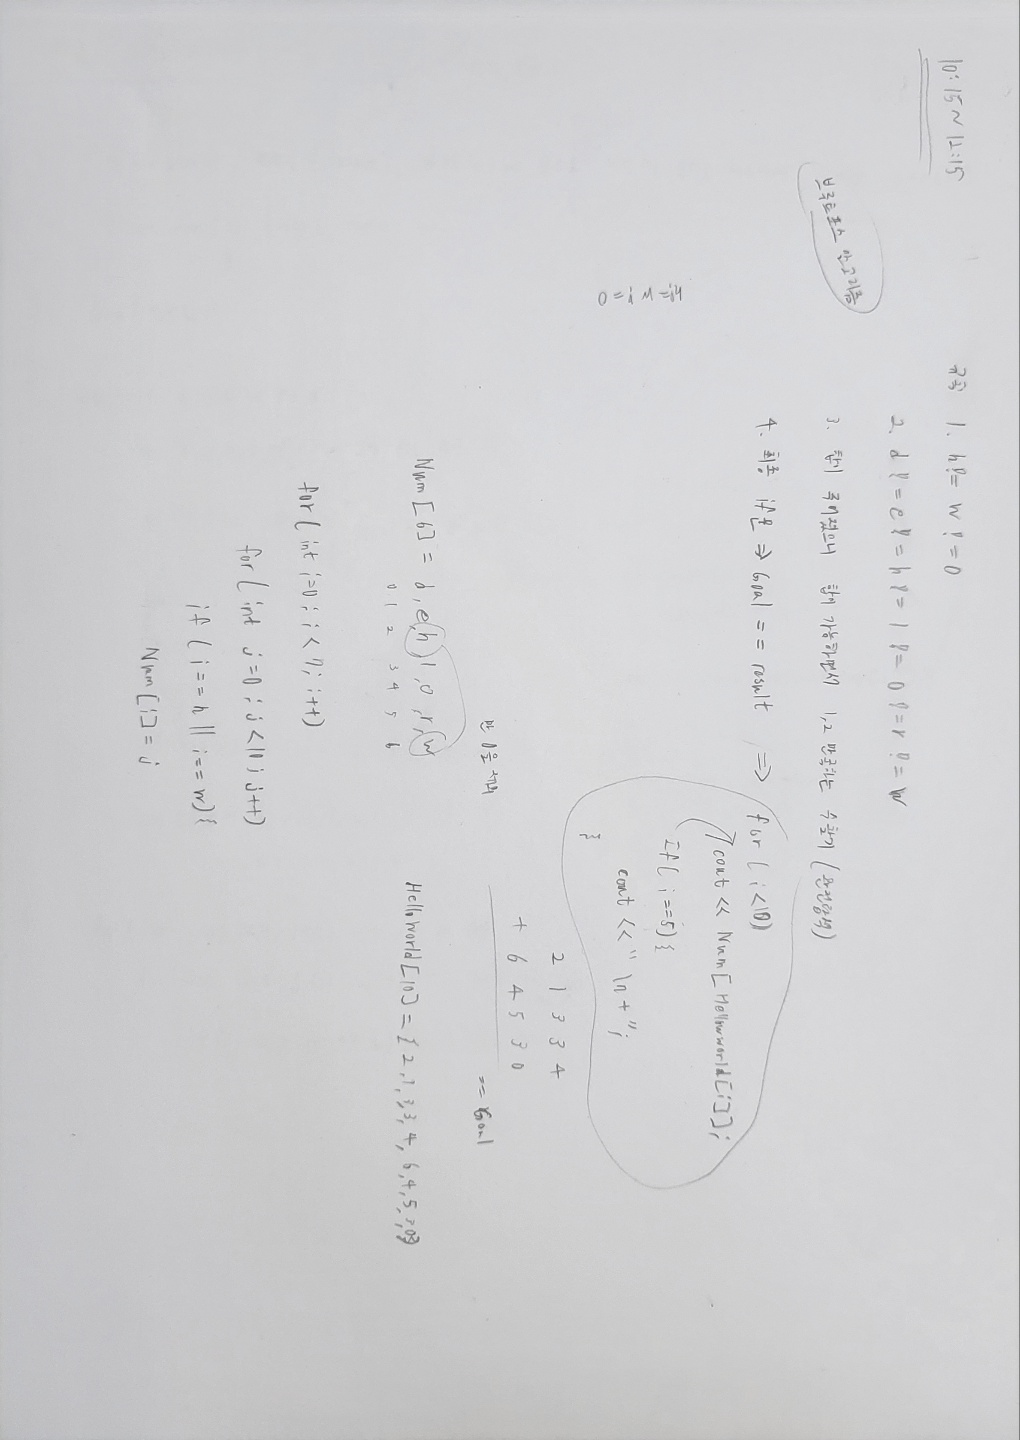 10:15 ~ 12:15
브루트포스 알고리즘
규칙 1. h != w != 0
2. d != e != h != l != o != r != w
3. 합이 주어졌으니 합이 가능하면서 1,2 만족하는 수 찾기 (완전탐색)
4. 최종 if문 => Goal == result =>
for ( i<10)
cout << Num[Helloworld[i]];
If( i==5){
cout << "\n+";
}
i=0
2 1 3 3 4
+ 6 4 5 3 0
== Goal
Num[6] = d, e, h, l, o, r, w
0 1 2 3 4 5 6
Helloworld[10] = { 2,1,3,3,4,6,4,5,3,0}
for( int i=0; i<7; i++)
for( int j=0; j<10; j++)
if ( i==h || i==w){
Num[i] = j